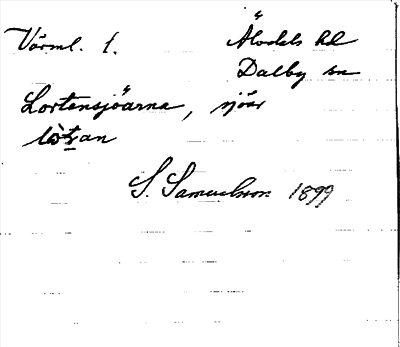 Värml. l. Älvdals hd
Dalby sn
Lortensjöarna, sjöar
S. Samuelsson 1899